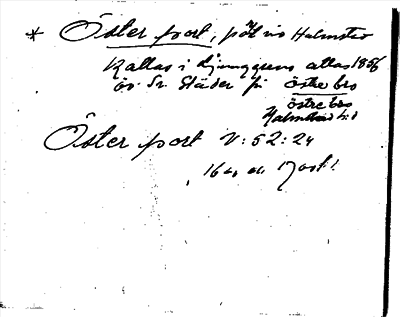 * Öster port, på vis Halmstad
Kallas i Ljunggrens atlas 1856
öv. Sv. Städer för östre bro
östre bro
Halmstad h:l
Öster port V: 52: 24